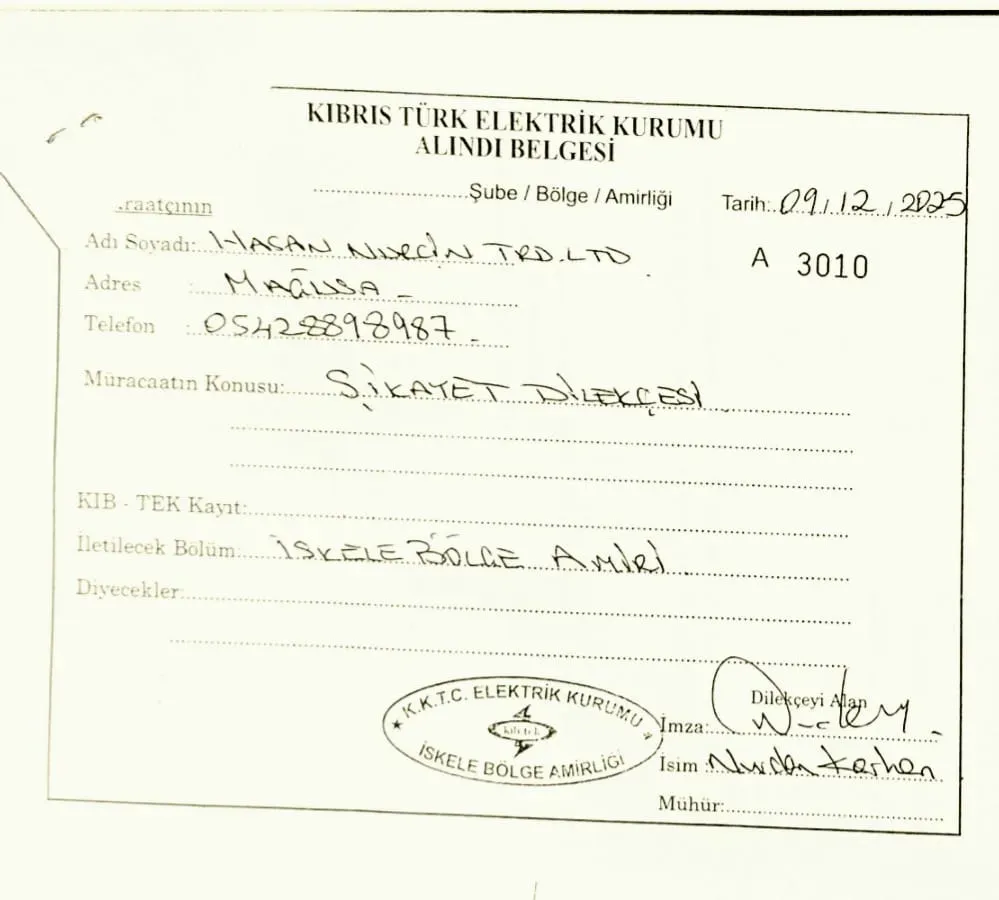 KIBRIS TÜRK ELEKTRİK KURUMU
ALINDI BELGESİ
....................Şube / Bölge / Amirliği Tarih: 09,12,2025
.raatçının
Adı Soyadı: HASAN NURCİN TRD.LTD
A 3010
Adres : MAĞUSA
Telefon : 05428898987
Müracaatın Konusu: ŞİKAYET DİLEKÇESİ
KIB - TEK Kayıt:
İletilecek Bölüm: İSKELE BÖLGE AMİRİ
Diyecekler:
Dilekçeyi Alan
İmza:
İsim : Nurdan Korhan
Mühür:
K.K.T.C. ELEKTRİK KURUMU
kıb-tek
İSKELE BÖLGE AMİRLİĞİ